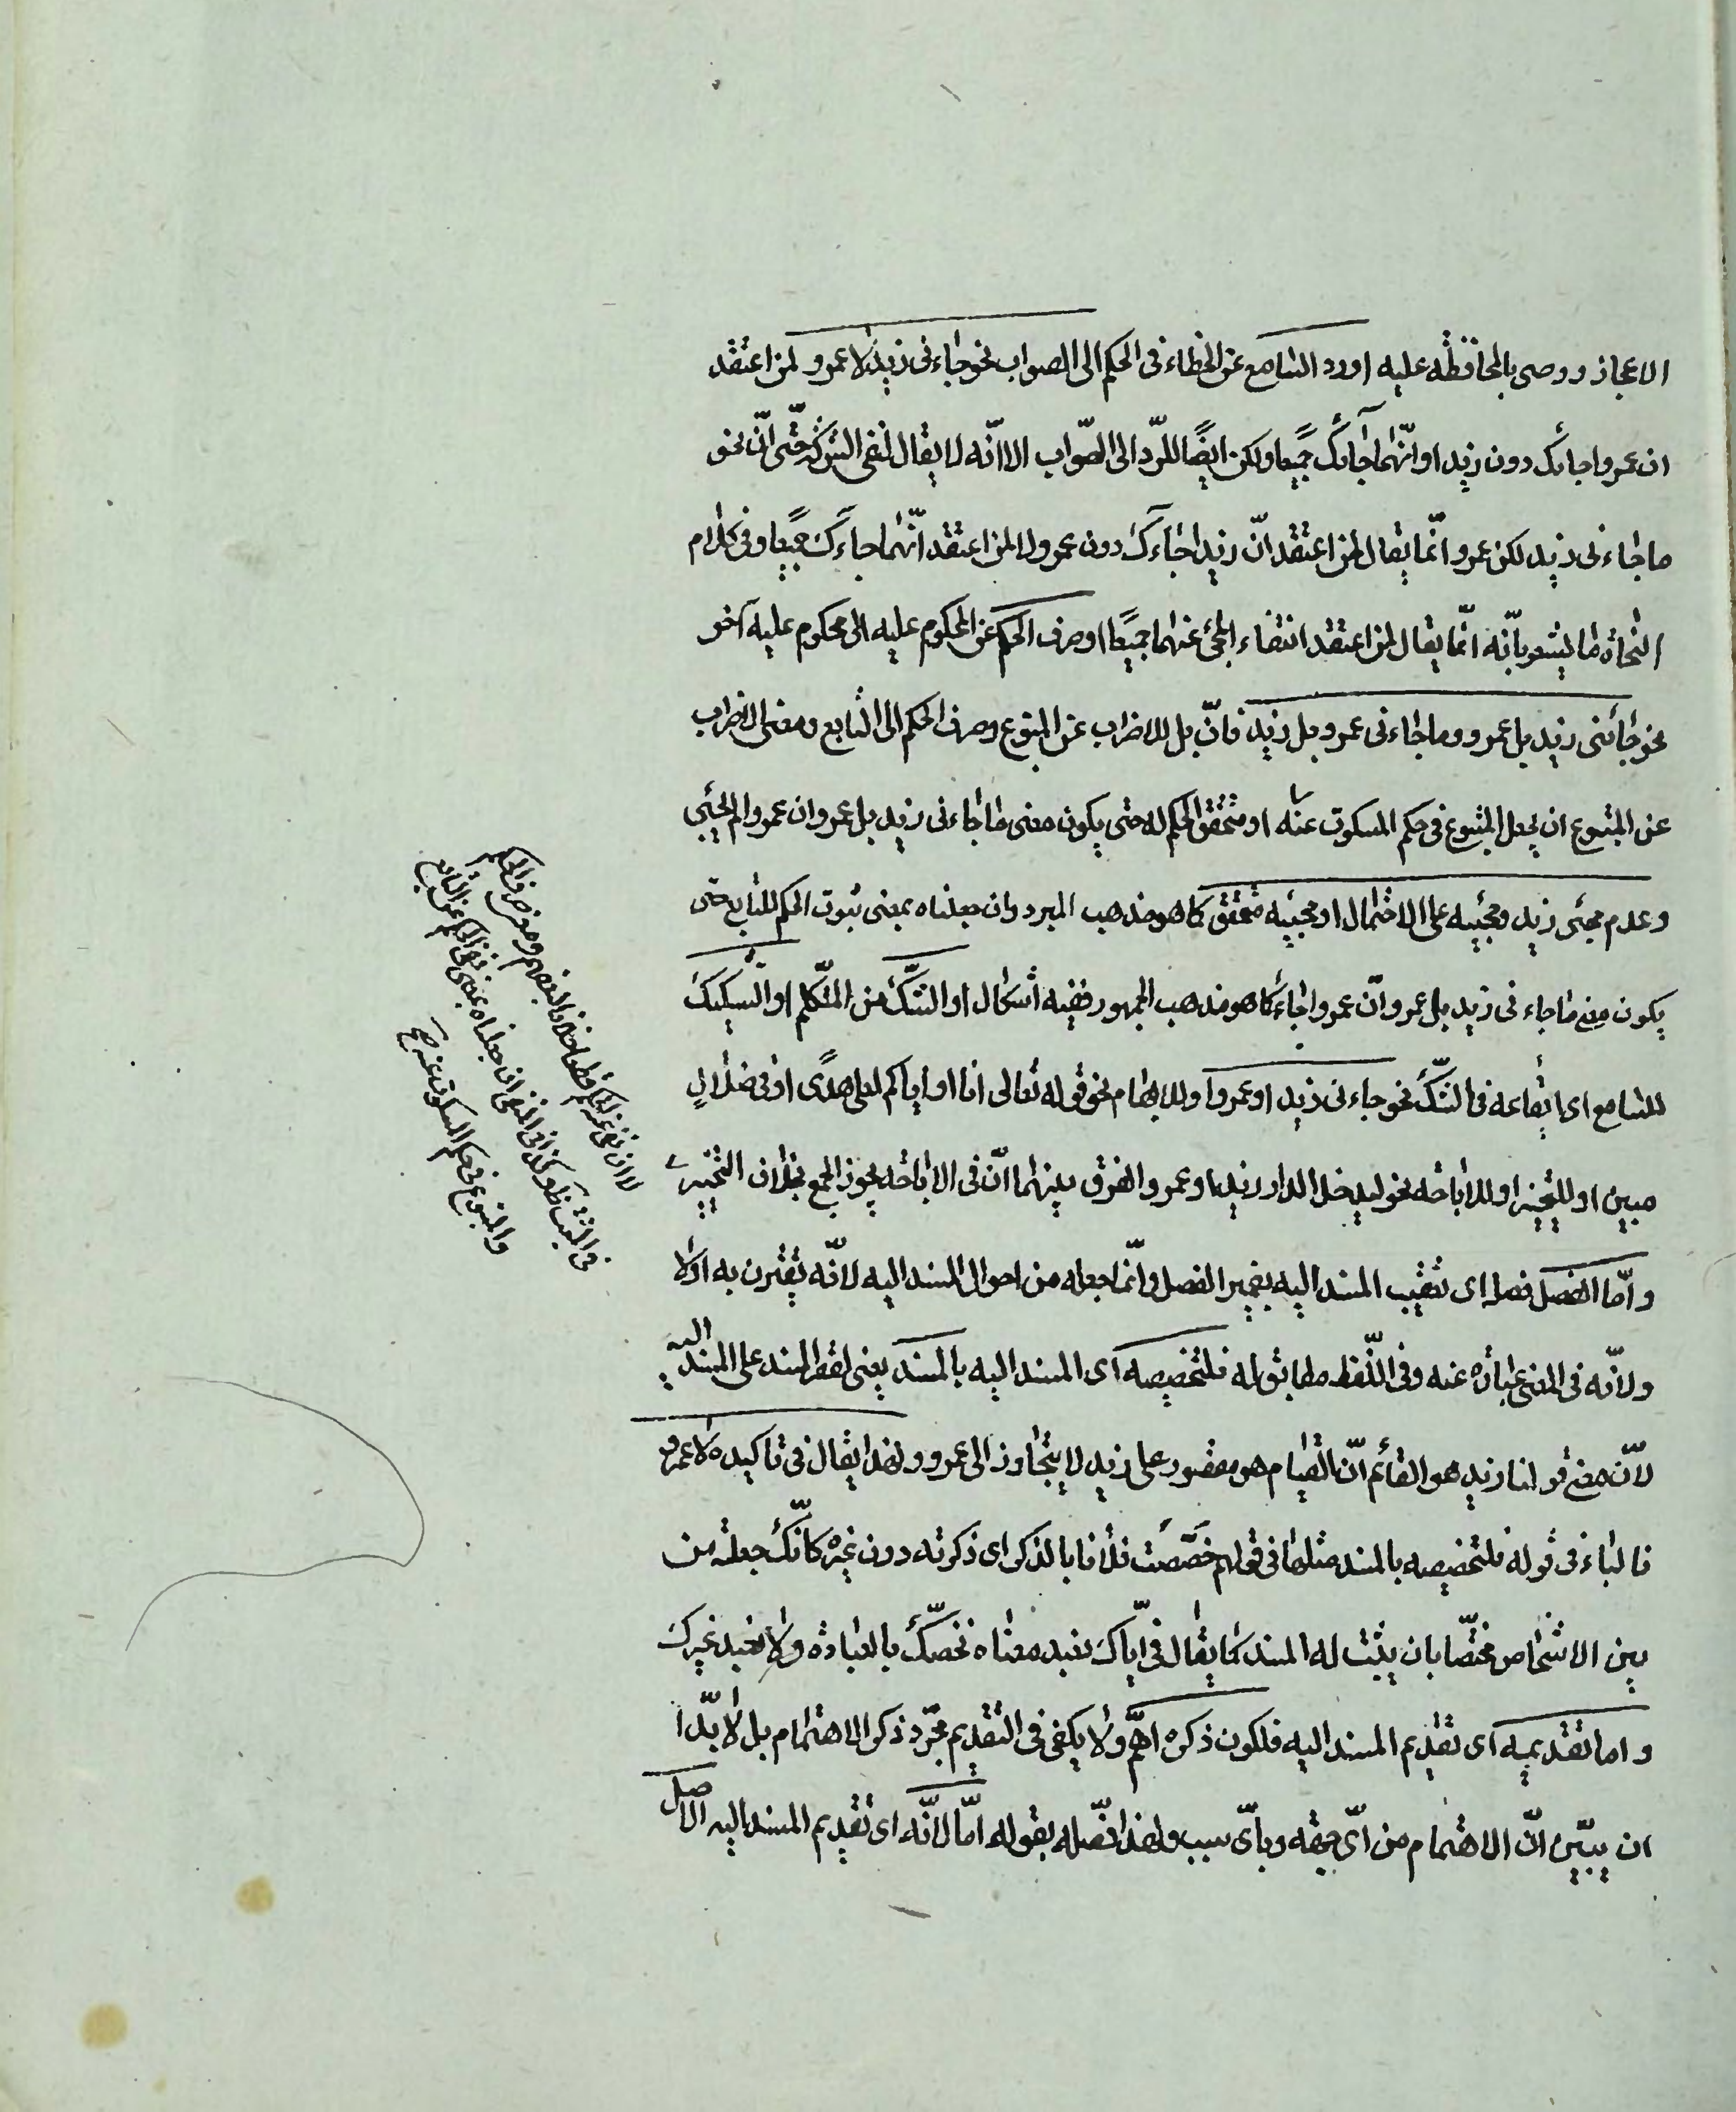 الاعجاز ووصى بالمحافظة عليه اورد السامع عن الخطاء فى الحكم الى الصواب نحو جاءنى زيد لا عمرو لمن اعتقد
ان عمروا جائك دون زيد او انّهما جاآئك جميعا ولكن ايضًا للرّد الى الصّواب الا انّه لا يقال لنفى الشركة حتّى انّ نحو
ما جاءنى زيد لكن عمرو انّما يقال لمن اعتقد انّ زيدا جاءك دون عمرو لا لمن اعتقد انّهما جاءك جميعا وفى كلام
النحاة ما يشعر بانّه انّما يقال لمن اعتقد انتفاء المجئ عنهما جميعًا او صرف الحكم عن المحكوم عليه الى محكوم عليه آخر
نحو جائنى زيد بل عمرو وما جاءنى عمرو بل زيد فانّ بل للاضراب عن المتبوع وصرف الحكم الى التابع ومعنى الاضراب
عن المتبوع ان يجعل المتبوع فى حكم المسكوت عنه او متحقق الحكم له حتى يكون معنى ما جاءنى زيد بل عمرو ان عمروا لم يجئ
وعدم مجئى زيد ومجيئه على الاحتمال او مجيئه محقق كما هو مذهب المبرد وان جعلناه بمعنى ثبوت الحكم للتابع حتى
يكون معنى ما جاءنى زيد بل عمرو انّ عمروا جاء كما هو مذهب الجمهور ففيه اشكال او الشّكّ من المتكلم او التشكيك
للسامع اى ايقاعه فى الشّكّ نحو جاءنى زيد او عمرو او للابهام نحو قوله تعالى انا او اياكم لعلى هدًى او فى ضلالٍ
مبين او للتخيير او للاباحة نحو ليدخل الدار زيد او عمرو والفرق بينهما انّ فى الاباحة يجوز الجمع بخلاف التخيير
وامّا الفصل فصله اى تعقيب المسند اليه بضمير الفصل وانّما جعله من احوال المسند اليه لانّه يقترن به اولا
ولانّه فى المعنى عبارة عنه وفى اللّفظ مطابق له فلتخصيصه اى المسند اليه بالمسند يعنى لقصر المسند على المسند اليه
لانّ معنى قولنا زيد هو القائم انّ القيام هو مقصور على زيد لا يتجاوز الى عمرو ولهذا يقال فى تاكيده لا عمرو
فالباء فى قوله فلتخصيصه بالمسند مثلها فى قولهم خصّصت فلانا بالذكر اى ذكرته دون غيره كانّك جعلته من
بين الاشخاص مختصّا بان يثبت له المسند كما يقال فى ايّاك نعبد معناه نخصّك بالعبادة ولا نعبد غيرك
واما تقديمه اى تقديم المسند اليه فلكون ذكره اهمّ ولا يكفى فى التقديم مجرّد ذكر الاهتمام بل لا بدّ
ان يبيّن انّ الاهتمام من اىّ جهة وباىّ سبب ولهذا فصّله بقوله امّا لانّه اى تقديم المسند اليه الاصل
والمتبوع فى حكم المسكوت عنه صح